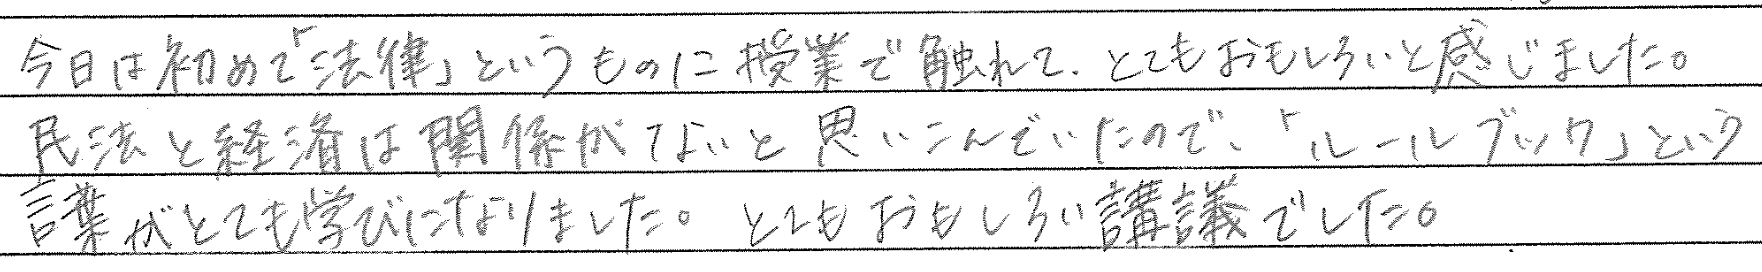 今日は初めて「法律」というものに授業で触れて、とてもおもしろいと感じました。
民法と経済は関係がないと思いこんでいたので、「ルールブック」という
言葉がとても学びになりました。とてもおもしろい講議でした。